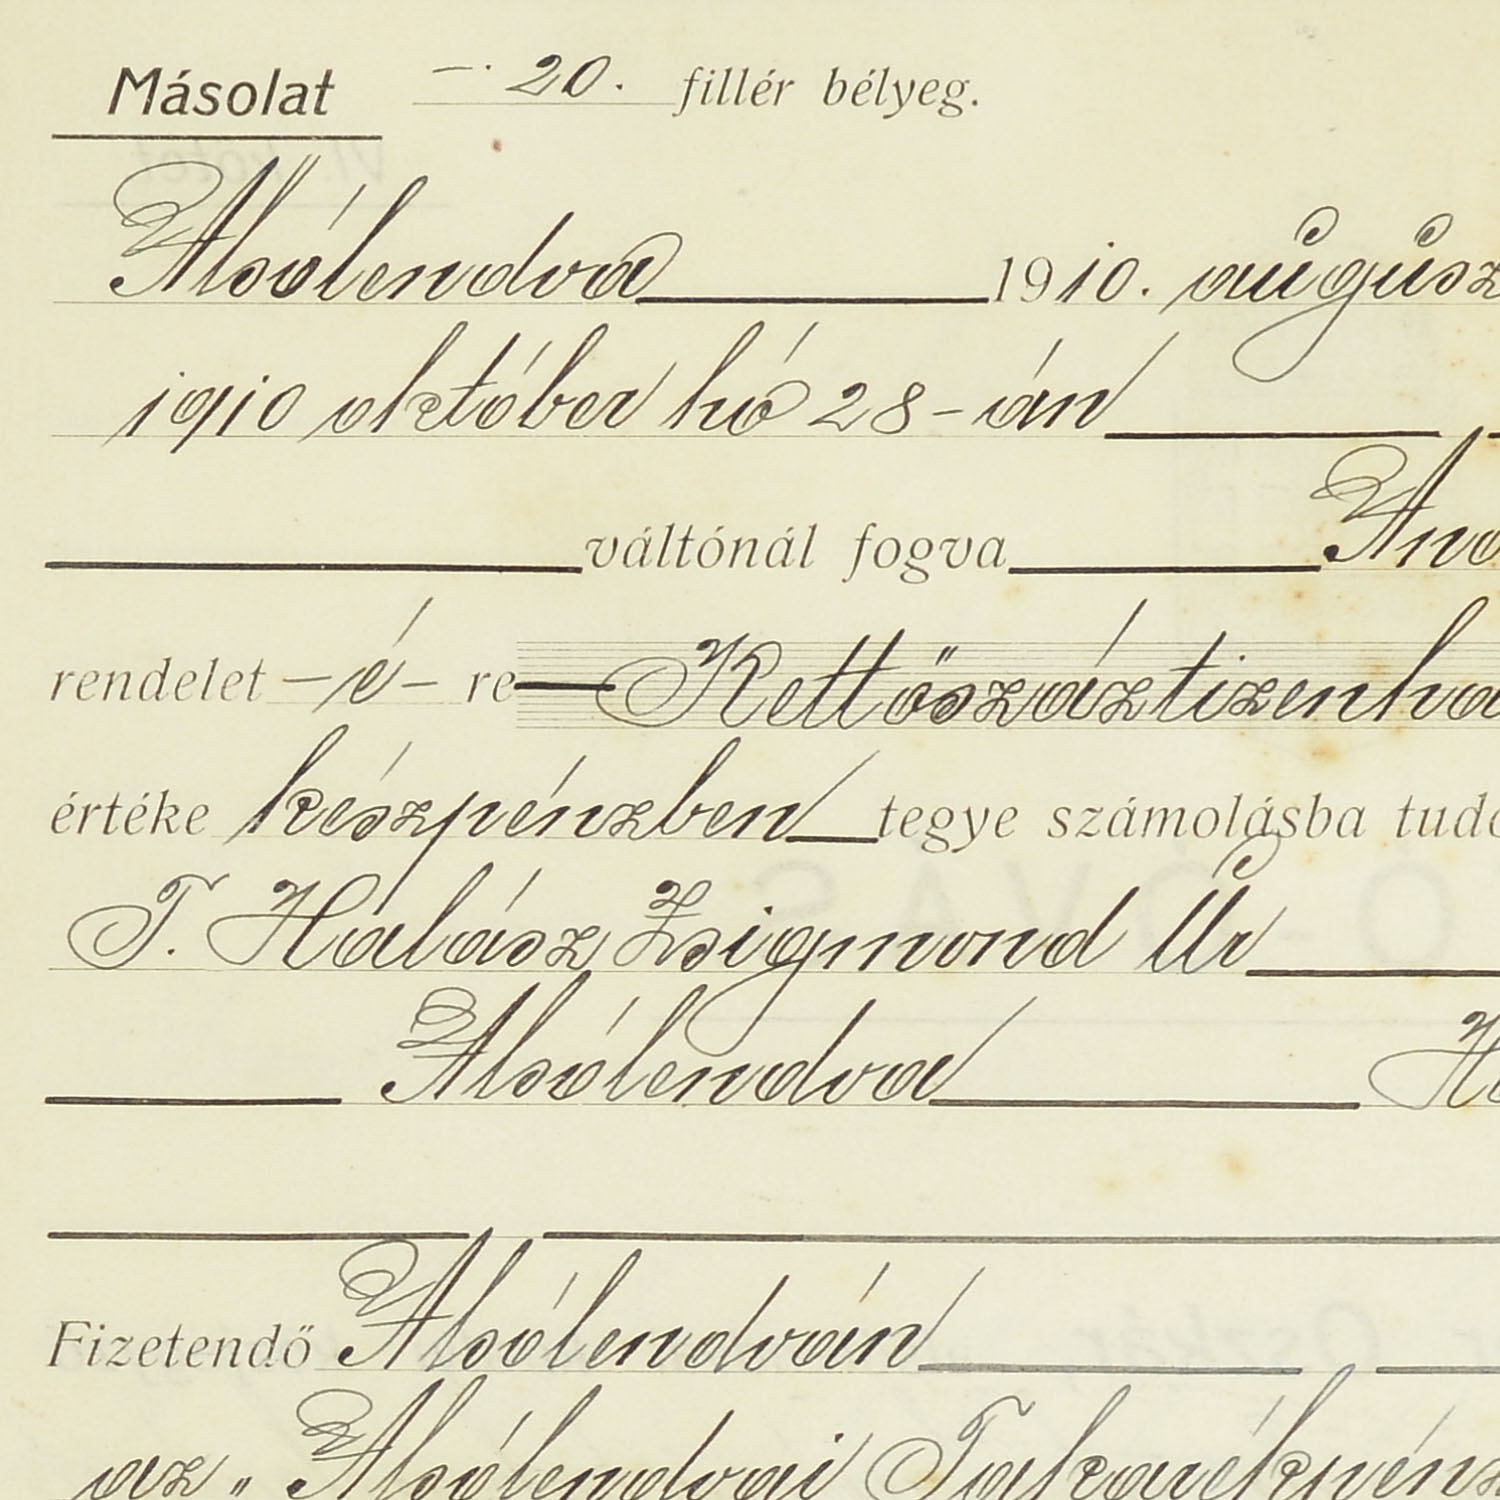 Másolat –. 20. fillér bélyeg.
Alsólendva 1910. augusz
1910 október hó 28-án
váltónál fogva
rendelet – é – re Kettőszáztizenha
értéke készpénzben tegye számolásba tud
T. Halász Zsigmond Úr
Alsólendva
Fizetendő Alsólendván
az „Alsólendvai Takarékpénz